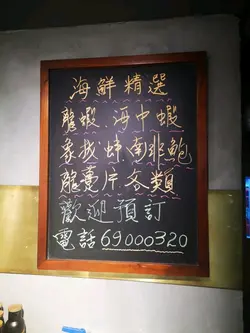 海鮮精選
龍蝦 海中蝦
象拔蚌 南非鮑
龍躉片 各類
歡迎預訂
電話 69000320